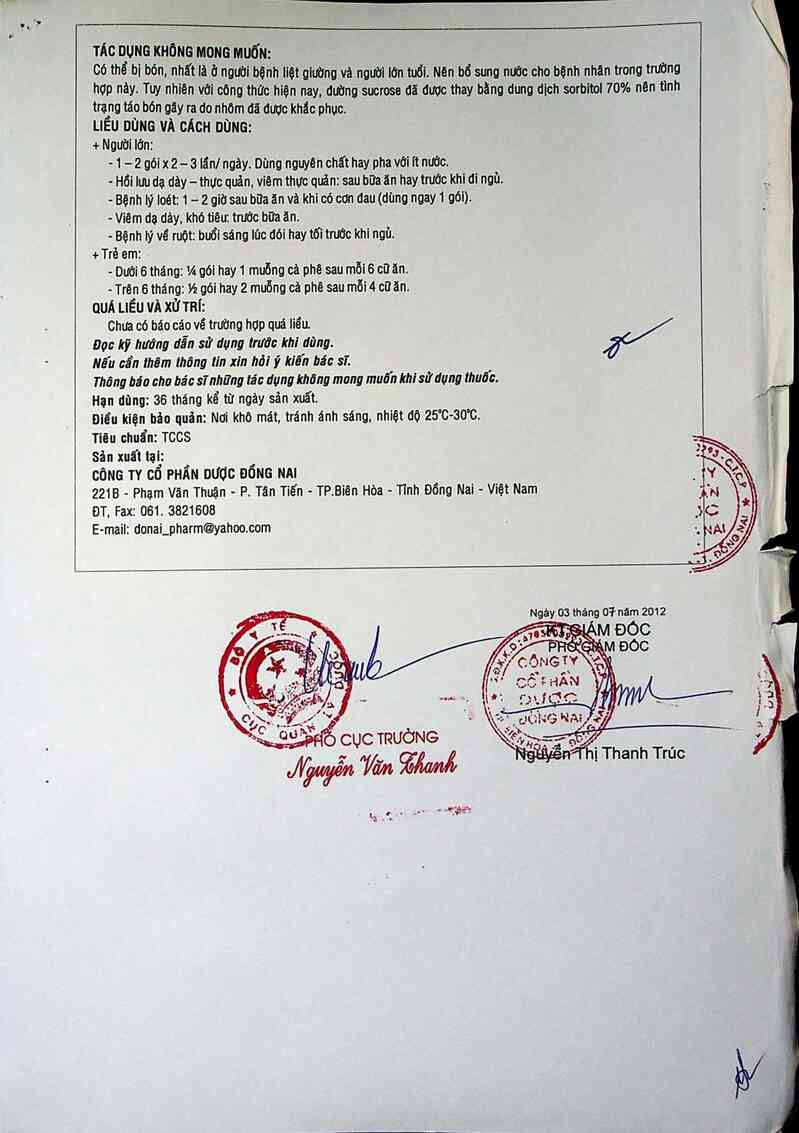 TÁC DỤNG KHÔNG MONG MUỐN:
Có thể bị bón, nhất là ở người bệnh liệt giường và người lớn tuổi. Nên bổ sung nước cho bệnh nhân trong trường
hợp này. Tuy nhiên với công thức hiện nay, đường sucrose đã được thay bằng dung dịch sorbitol 70% nên tình
trạng táo bón gây ra do nhôm đã được khắc phục.
LIỀU DÙNG VÀ CÁCH DÙNG:
+ Người lớn:
- 1 – 2 gói x 2 – 3 lần/ ngày. Dùng nguyên chất hay pha với ít nước.
- Hồi lưu dạ dày – thực quản, viêm thực quản: sau bữa ăn hay trước khi đi ngủ.
- Bệnh lý loét: 1 – 2 giờ sau bữa ăn và khi có cơn đau (dùng ngay 1 gói).
- Viêm dạ dày, khó tiêu: trước bữa ăn.
- Bệnh lý về ruột: buổi sáng lúc đói hay tối trước khi ngủ.
+ Trẻ em:
- Dưới 6 tháng: ¼ gói hay 1 muỗng cà phê sau mỗi 6 cữ ăn.
- Trên 6 tháng: ½ gói hay 2 muỗng cà phê sau mỗi 4 cữ ăn.
QUÁ LIỀU VÀ XỬ TRÍ:
Chưa có báo cáo về trường hợp quá liều.
Đọc kỹ hướng dẫn sử dụng trước khi dùng.
Nếu cần thêm thông tin xin hỏi ý kiến bác sĩ.
Thông báo cho bác sĩ những tác dụng không mong muốn khi sử dụng thuốc.
Hạn dùng: 36 tháng kể từ ngày sản xuất.
Điều kiện bảo quản: Nơi khô mát, tránh ánh sáng, nhiệt độ 25°C-30°C.
Tiêu chuẩn: TCCS
Sản xuất tại:
CÔNG TY CỔ PHẦN DƯỢC ĐỒNG NAI
221B - Phạm Văn Thuận - P. Tân Tiến - TP.Biên Hòa - Tỉnh Đồng Nai - Việt Nam
ĐT, Fax: 061. 3821608
E-mail: donai_pharm@yahoo.com
Ngày 03 tháng 07 năm 2012
KT.GIÁM ĐỐC
PHÓ GIÁM ĐỐC
BỘ Y TẾ
CỤC QUẢN LÝ DƯỢC
CÔNG TY
CỔ PHẦN
DƯỢC
ĐỒNG NAI
PHÓ CỤC TRƯỞNG
Nguyễn Văn Thanh
Nguyễn Thị Thanh Trúc